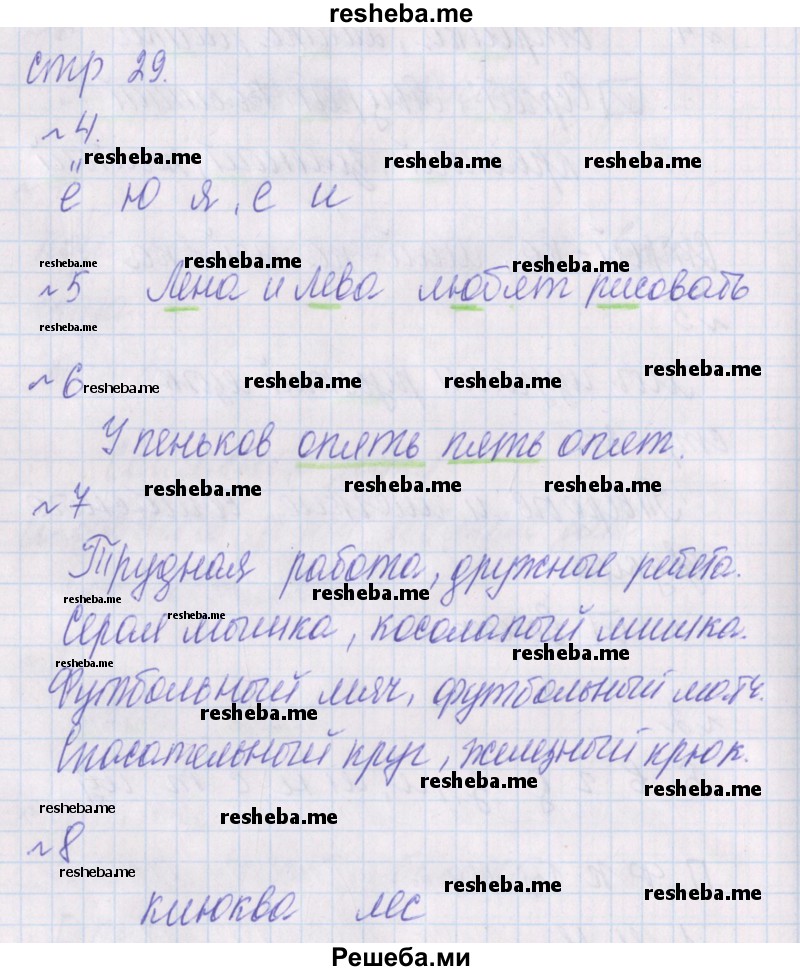 resheba.me
стр 29.
№4.
resheba.me resheba.me resheba.me
ё ю я, е и
resheba.me resheba.me resheba.me
№5 Лена и Лева любят рисовать
resheba.me
resheba.me
№6 resheba.me resheba.me resheba.me
У пеньков опять пять опят.
resheba.me resheba.me resheba.me
№7
Трудная работа, дружные ребята.
resheba.me resheba.me resheba.me
Серая мышка, косолапый мишка.
resheba.me resheba.me
Футбольный мяч, футбольный матч.
resheba.me
Спасательный круг, железный крюк.
resheba.me resheba.me
resheba.me resheba.me
№8
resheba.me resheba.me resheba.me
клюква лес
Решеба.ми